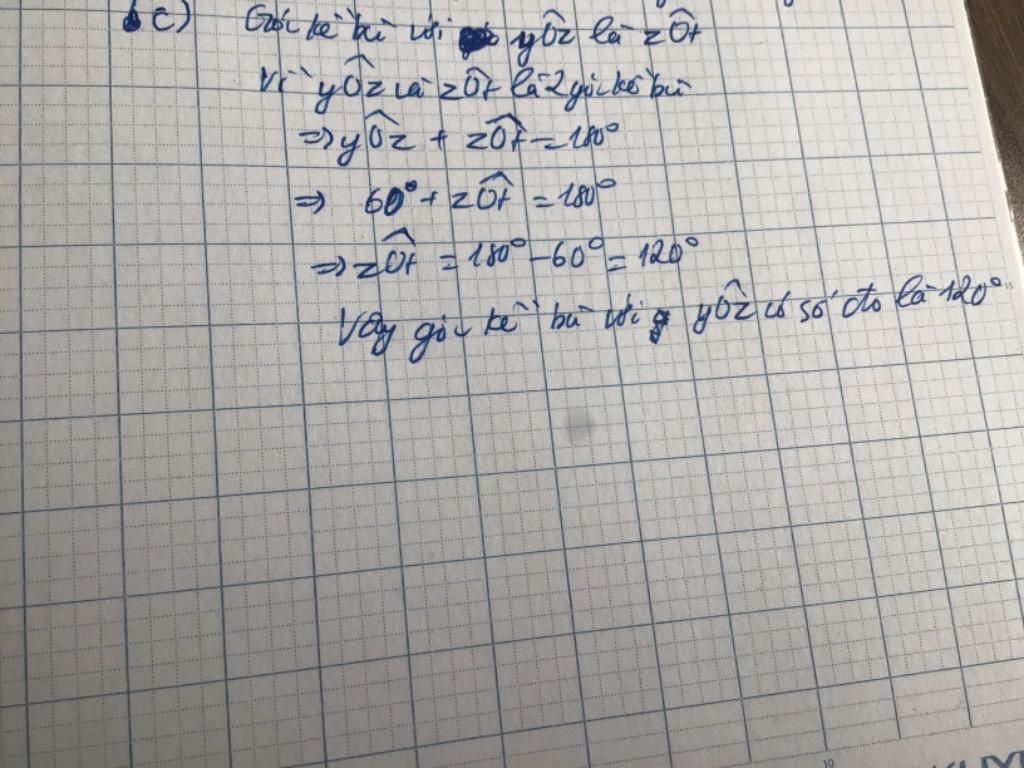 c) Góc kề bù với yÔz là zÔt
Vì yÔz và zÔt là 2 góc kề bù
=> yÔz + zÔt = 180°
=> 60° + zÔt = 180°
=> zÔt = 180° - 60° = 120°
Vậy góc kề bù với yÔz có số đo là 120°
10